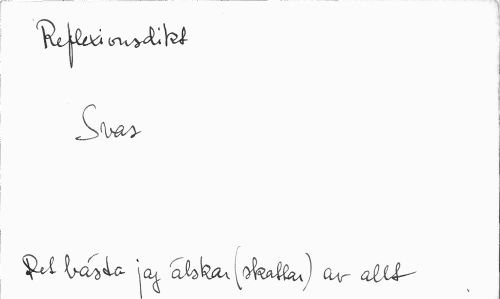 Reflexionsdikt
Svar
Det bästa jag älskar (skattar) av allt